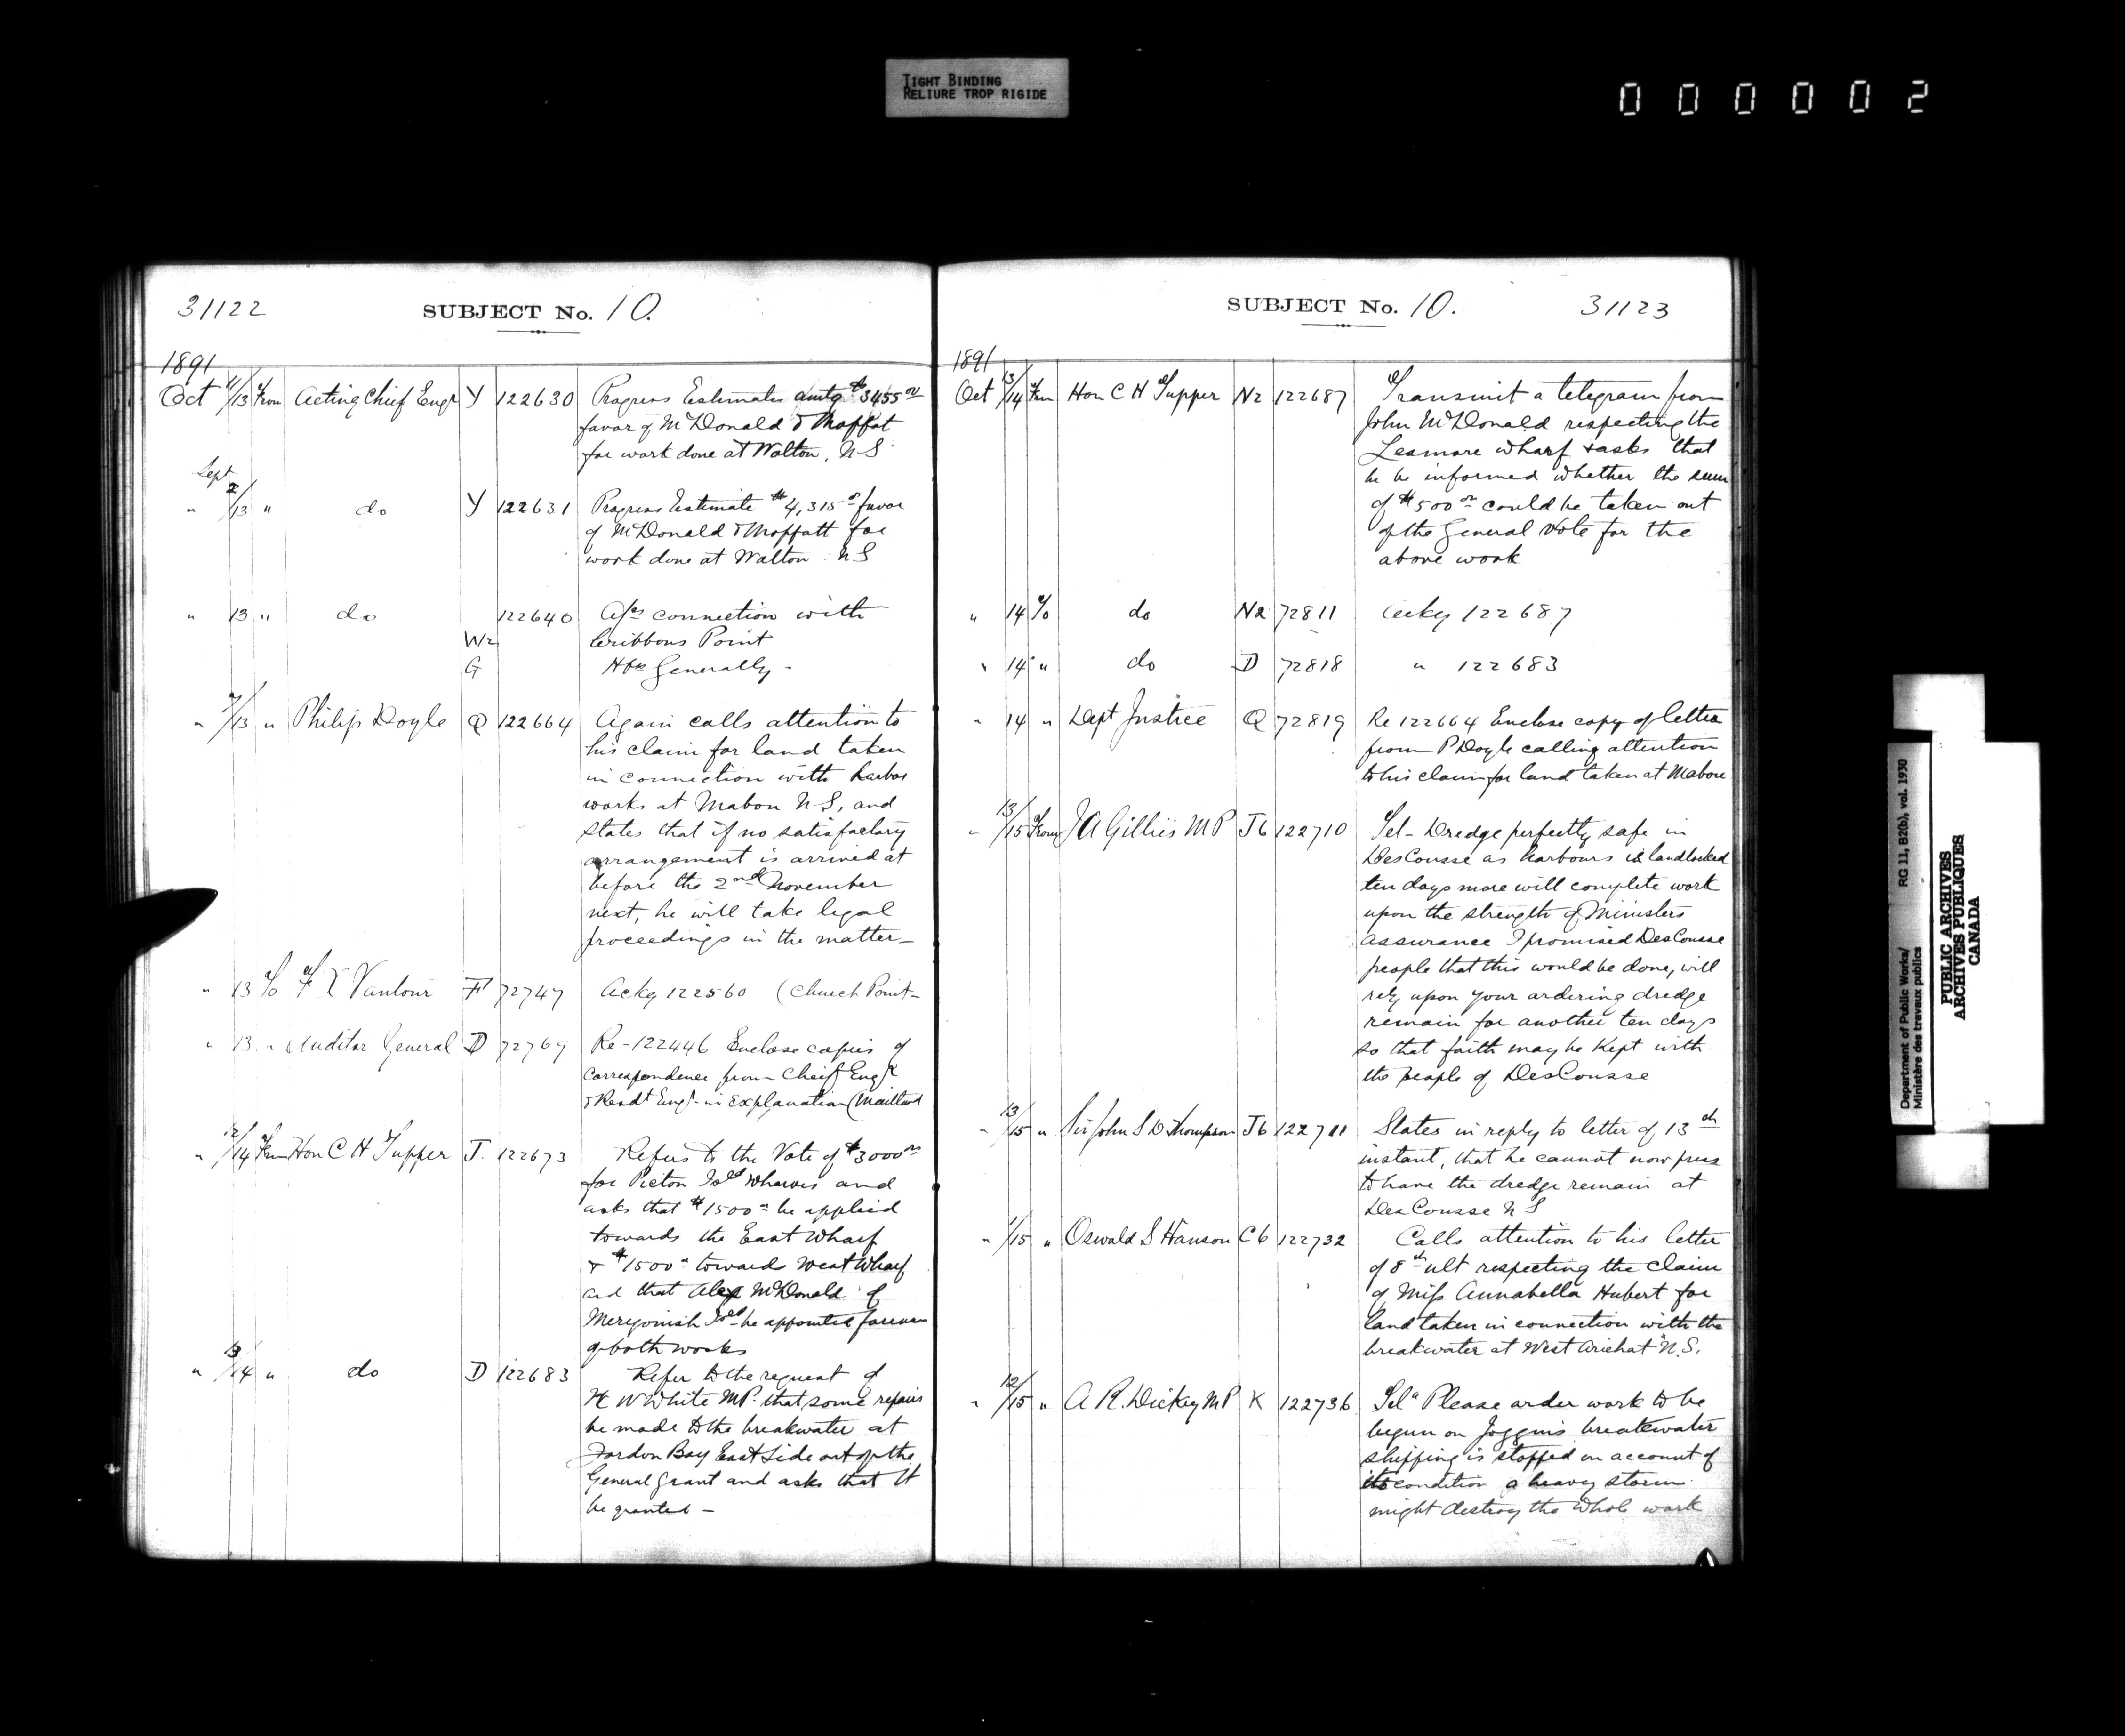 TIGHT BINDING
RELIURE TROP RIGIDE
000002
31122 SUBJECT No. 10.
1891
Oct 11/13 From Acting Chief Engr Y 122630 Progress Estimates amtg $3455 00
favor of McDonald & Moffat
for work done at Walton, N S
Sept
" 2/13 " do Y 122631 Progress Estimate $4,315 00 favor
of McDonald & Moffatt for
work done at Walton N S
" 13 " do 122640 connection with
W2 Cribbons Point
G Hbrs Generally -
" 7/13 " Philip Doyle Q 122664 Again calls attention to
his claim for land taken
in connection with harbor
works at Mabou N S, and
states that if no satisfactory
arrangement is arrived at
before the 2nd November
next, he will take legal
proceedings in the matter -
" 13 To F X Vautour F 72747 Ackg 122560 (Church Point -
" 13 " Auditor General D 72769 Re - 122446 Enclose copies of
correspondence from Cheif Engr
& Resdt Engr in explanation (Maitland
" 12/14 From Hon C H Tupper J. 122673 Refers to the Vote of $3000 00
for Picton Isld Wharves and
asks that $1500 00 be applied
towards the East Wharf
& $1500 00 towards West Wharf
and that Alex McDonald of
Merigonish Isld be appointed foreman
of both works
" 13/14 " do D 122683 Refer to the request of
N W White MP. that some repairs
be made to the breakwater at
Jordon Bay East Side out of the
General Grant and asks that it
be granted -
SUBJECT No. 10. 31123
1891
Oct 13/14 From Hon C H Tupper N2 122687 Transmit a telegram from
John McDonald respecting the
Lesmore Wharf & asks that
he be informed whether the sum
of $500 00 could be taken out
of the General Vote for the
above work
" 14 To do N2 72811 Ackg 122687
" 14 " do D 72818 " 122683
" 14 " Dept Justice Q 72819 Re 122664 Enclose copy of letter
from P Doyle calling attention
to his claim for land taken at Mabou
" 13/15 From J A Gillies M P J6 122710 Tel - Dredge perfectly safe in
DesCousse as harbours is landlocked
ten days more will complete work
upon the strength of Ministers
assurance I promised DesCousse
people that this would be done, will
rely upon your ordering dredge
remain for another ten days
so that faith may be kept with
the people of DesCousse
" 13/15 " Sir John S D Thompson J6 122711 States in reply to letter of 13th
instant, that he cannot now press
to have the dredge remain at
DesCousse N S
" 1/15 " Oswald S Hanson C6 122732 Calls attention to his letter
of 8th ult respecting the claim
of Miss Annabella Hubert for
land taken in connection with the
breakwater at West Arichat N.S.
" 12/15 " A R. Dickey M P K 122736 Tel " Please order work to be
begun on Joggins breakwater
shipping is stopped on account of
its condition a heavy storm
might destroy the whole work
Department of Public Works/ RG 11, B2(b), vol. 1930
Ministère des travaux publics
PUBLIC ARCHIVES
ARCHIVES PUBLIQUES
CANADA